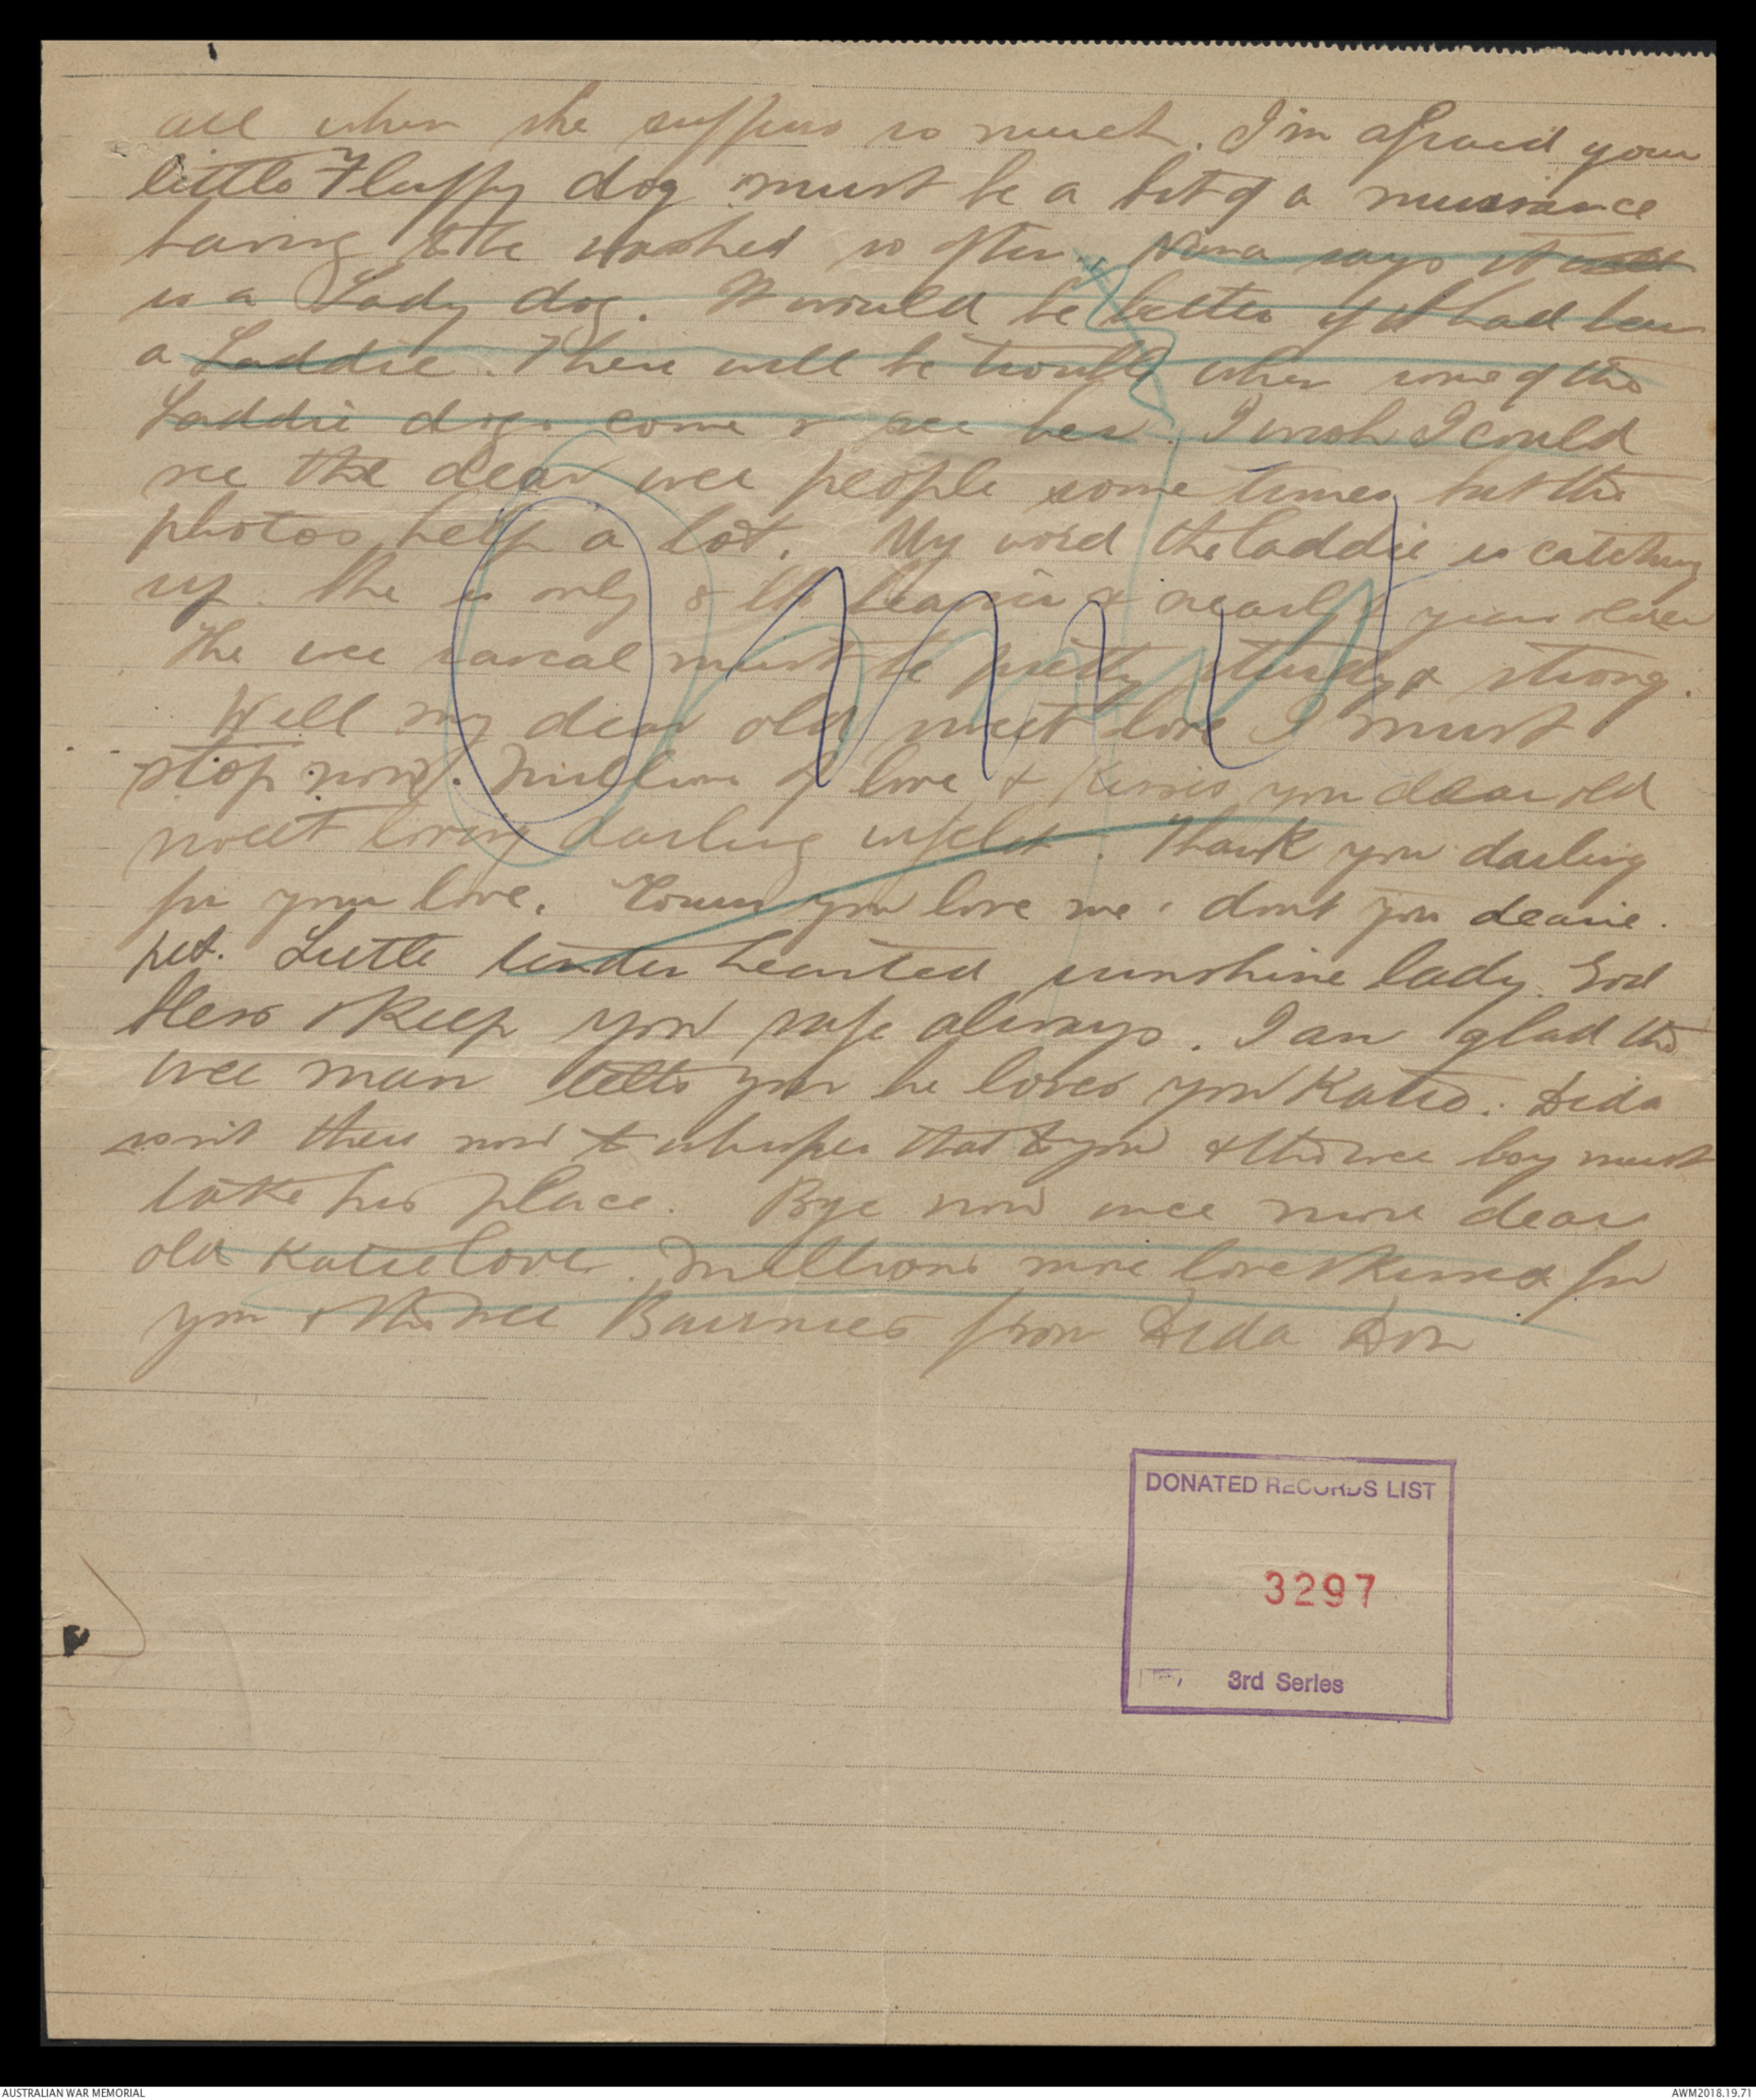 all when she suffers so much. I'm afraid your
little Fluffy dog must be a bit of a nuisance
having to be washed so often. Nana says it
is a Lady dog. It would be better if it had been
a Laddie. There will be trouble when some of the
Laddie dogs come & see her. I wish I could
see the dear wee people some times but the
photos help a lot. My word the laddie is catching
up. She is only & nearly years older
The wee rascal must be pretty sturdy & strong.
Well my dear old sweet love I must
stop now. Millions of love & kisses you dear old
sweet loving darling wifelet. Thank you darling
for your love. you love me, dont you dearie
pet. Little tender hearted sunshine lady. God
bless & keep you safe always. I am glad the
wee man tells you he loves you Katie. Dida
isn't there now to whisper that to you & the wee boy must
take his place. Bye now once more dear
old Katie love. Millions more love & kisses for
you & the wee Bairnies from Dida Don
Omit
Omit
DONATED RECORDS LIST
3297
3rd Series
AUSTRALIAN WAR MEMORIAL
AWM2018.19.71